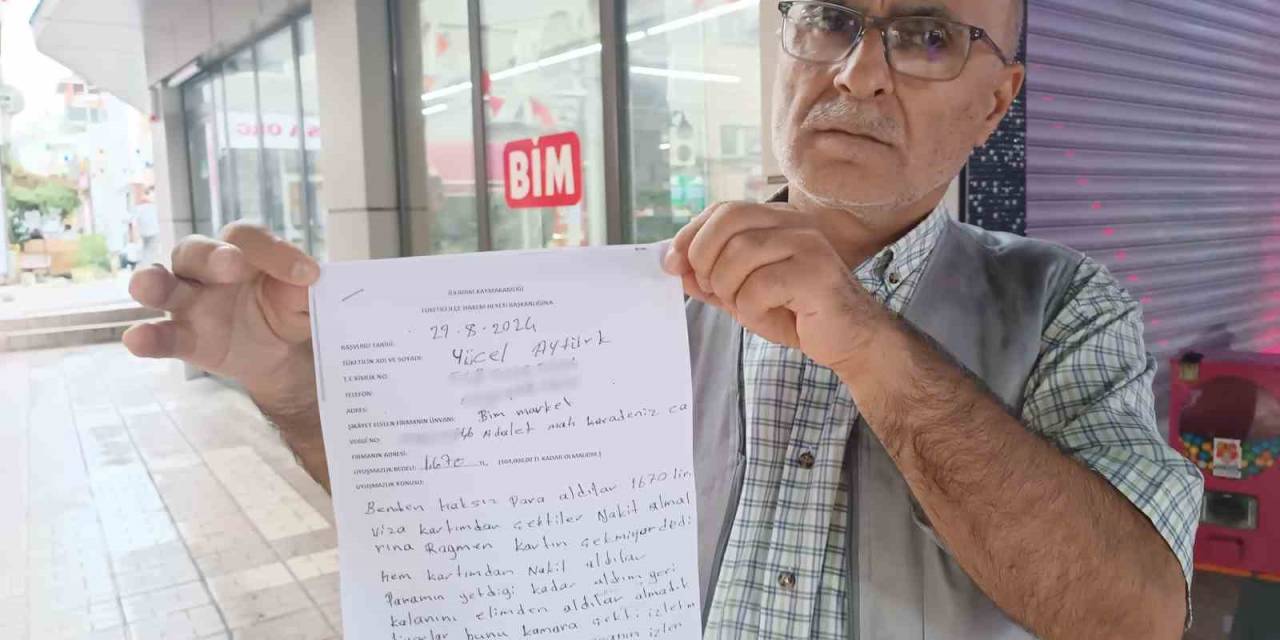 BİM
İLKADIM KAYMAKAMLIĞI
TÜKETİCİ İLÇE HAKEM HEYETİ BAŞKANLIĞINA
BAŞVURU TARİHİ: 29.8.2024
TÜKETİCİN ADI VE SOYADI: Yücel Aytürk
T.C KİMLİK NO:
TELEFON:
ADRES:
ŞİKAYET EDİLEN FİRMANIN ÜNVANI: Bim market
VERGİ NO: Adalet mah karadeniz ca
FİRMANIN ADRESİ:
UYUŞMAZLIK BEDELİ: 1.670 TL (104.000,00 TL KADAR OLMALIDIR.)
UYUŞMAZLIK KONUSU:
Benden Haksız Para aldılar 1670 lir
Viza kartımdan çektiler Nakit almal
rına Rağmen kartın çekmiyor dedi
hem kartımdan Nakit aldılar
Paramın yetdiği kadar aldım geri
kalanını elimden aldılar almadık
bunu kamara çekti izletm
izlen